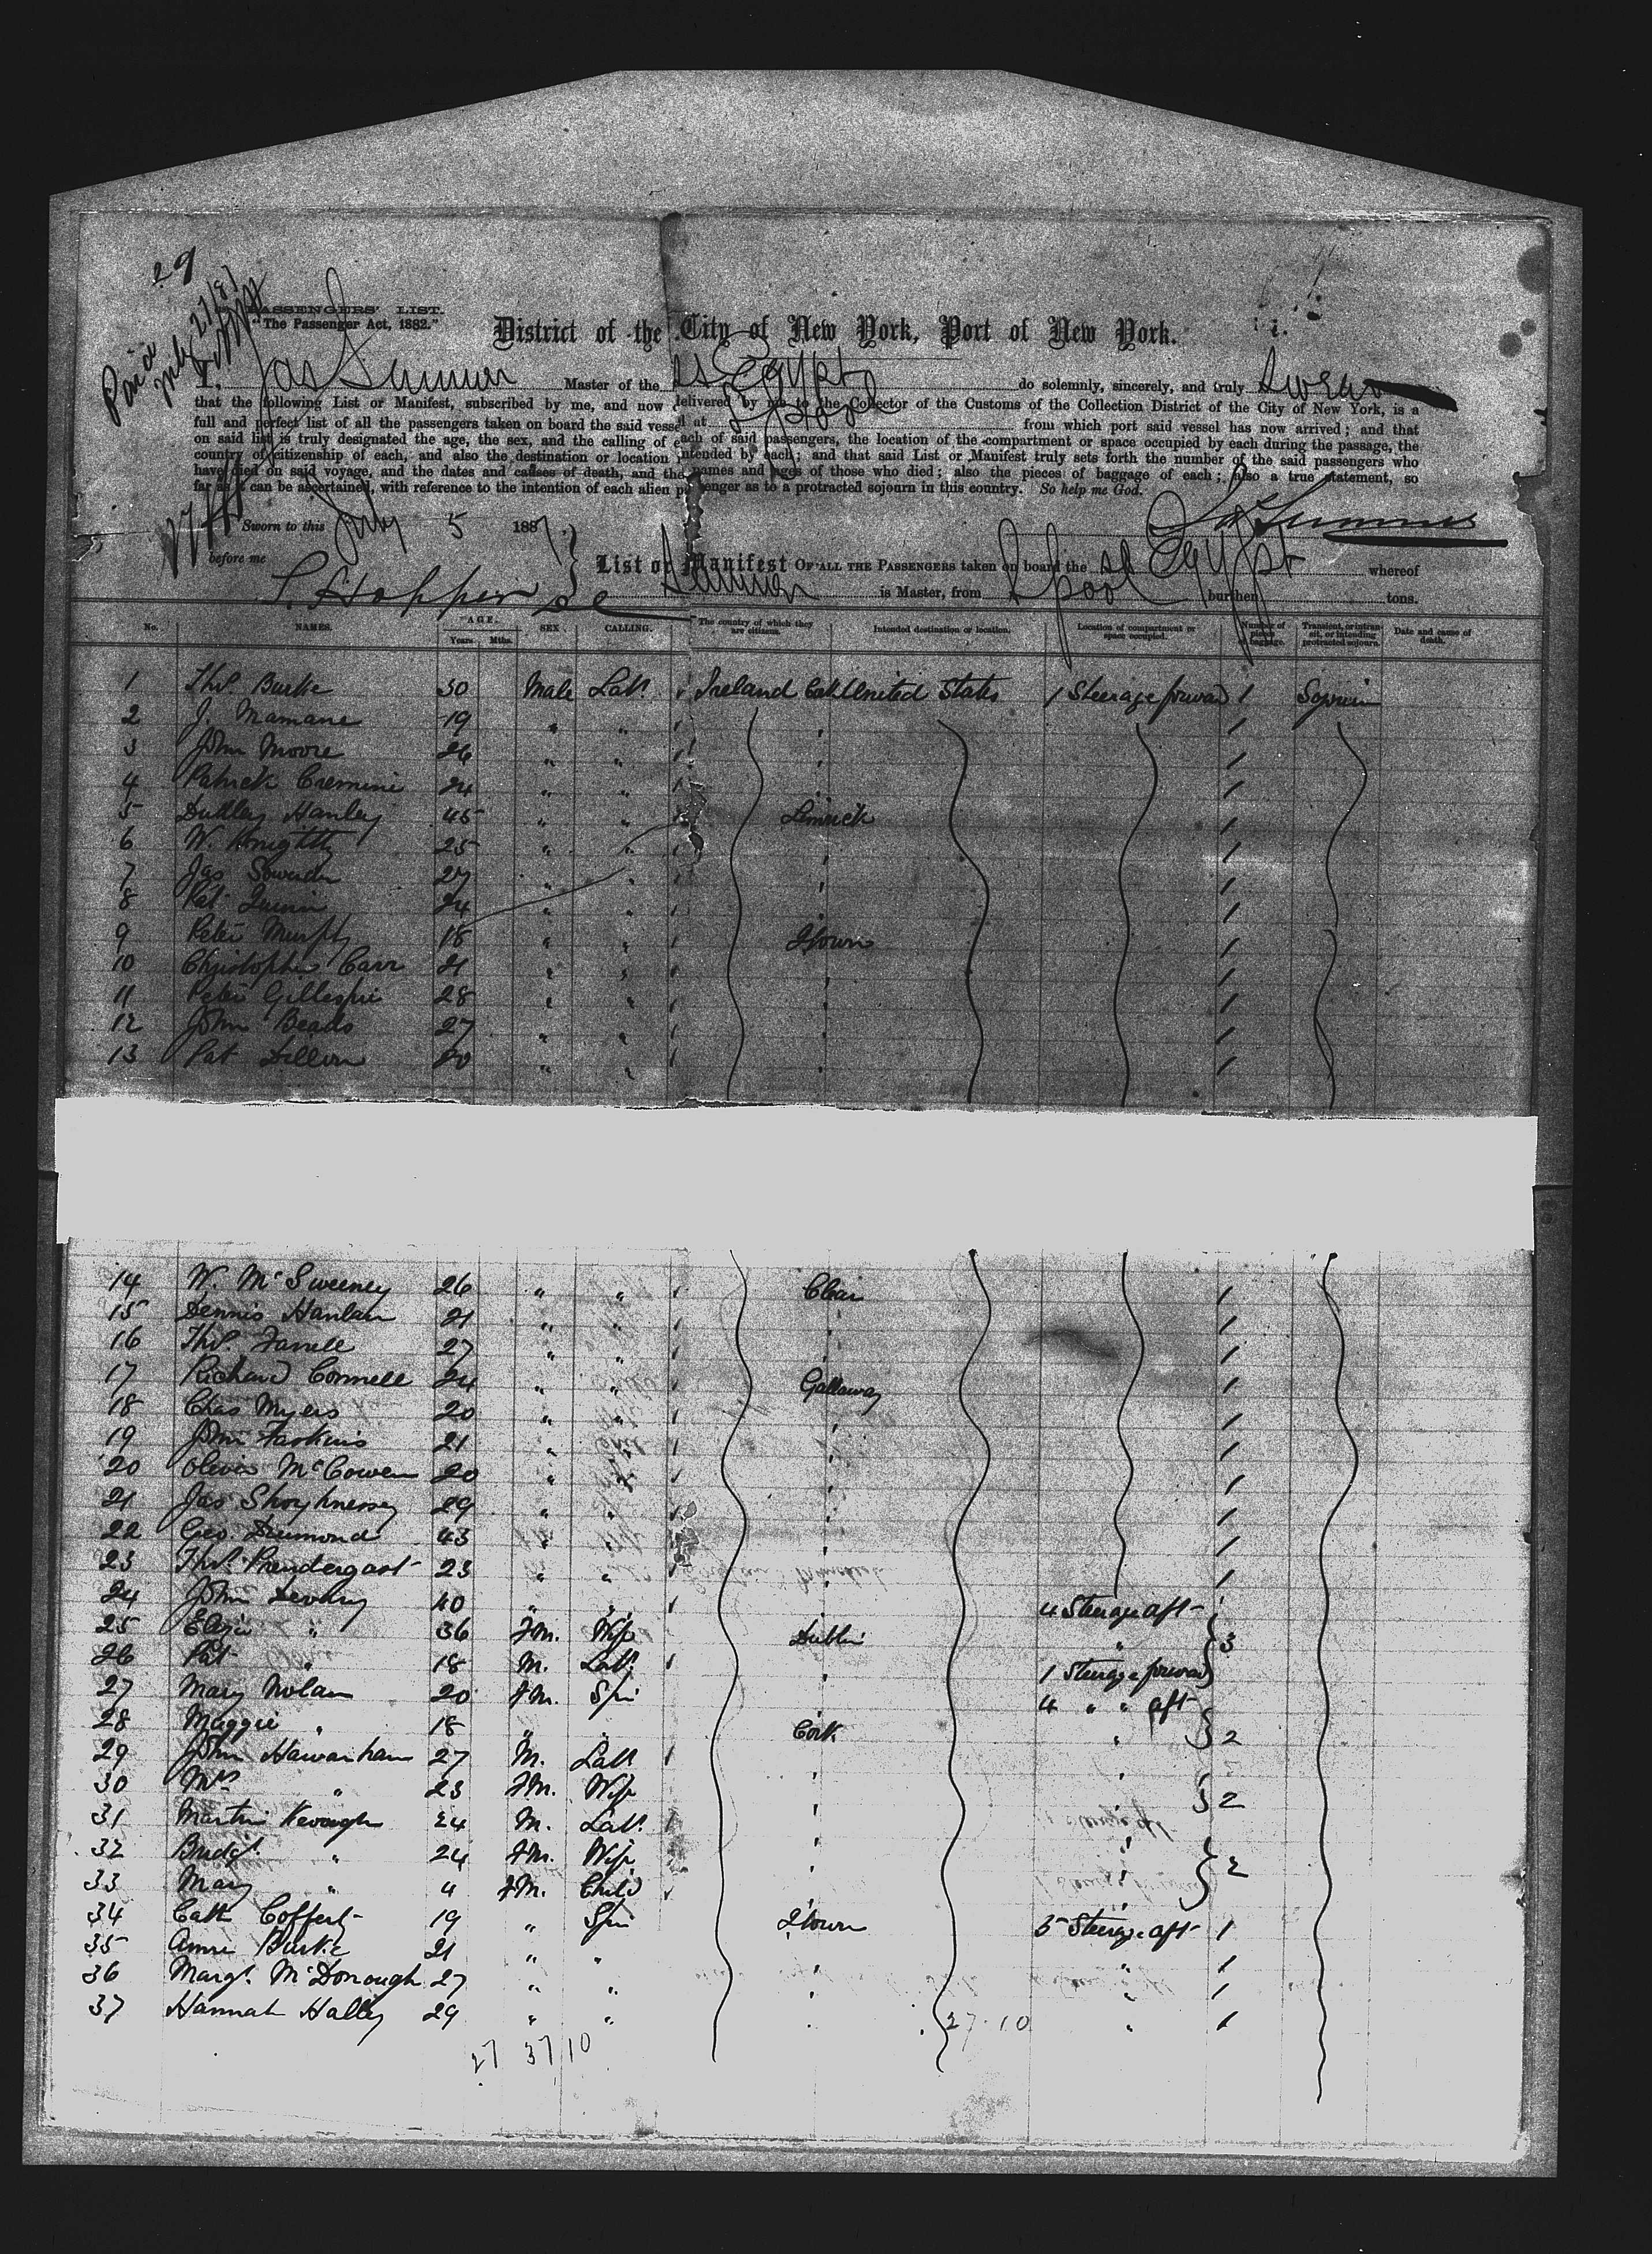 29
Paid
PASSENGERS' LIST.
"The Passenger Act, 1882."
District of the City of New York, Port of New York.
I, Jas Sumner Master of the SS Egypt do solemnly, sincerely, and truly swear
that the following List or Manifest, subscribed by me, and now delivered by me to the Collector of the Customs of the Collection District of the City of New York, is a
full and perfect list of all the passengers taken on board the said vessel at L'pool from which port said vessel has now arrived; and that
on said list is truly designated the age, the sex, and the calling of each of said passengers, the location of the compartment or space occupied by each during the passage, the
country of citizenship of each, and also the destination or location intended by each; and that said List or Manifest truly sets forth the number of the said passengers who
have died on said voyage, and the dates and causes of death, and the names and ages of those who died; also the pieces of baggage of each; also a true statement, so
far as it can be ascertained, with reference to the intention of each alien passenger as to a protracted sojourn in this country. So help me God.
Sworn to this July 5 1887 Jas Sumner
before me
List or Manifest OF ALL THE PASSENGERS taken on board the SS Egypt whereof
S. Hopper Sumner is Master, from L'pool burthen tons.
No. NAMES. AGE. Years Mths. SEX CALLING. The country of which they are citizens. Intended destination or location. Location of compartment or space occupied. Number of pieces of baggage. Transient, or in transit, or intending protracted sojourn. Date and cause of death.
1 Thos. Burke 30 Male Labr. Ireland Cork United States 1 Steerage forward 1
2 J. Mamane 19 " " 1
3 John Moore 26 " " 1
4 Patrick Cremine 24 " " 1
5 Dudley Hanley 45 " " Limrick 1
6 W. Knightly 25 " " 1
7 Jas 27 " " 1
8 Pat Quinn 24 " " 1
9 Peter Murphy 18 " " Qtown 1
10 Christopher Carr 21 " " 1
11 Peter Gillespie 28 " " 1
12 John Beads 27 " " 1
13 Pat Dillon 20 " " 1
14 W. McSweeney 26 " " Clare 1
15 Dennis Hanlan 21 " " 1
16 Thos. Farrell 27 " " 1
17 Richard Connell 24 " " Gallaway 1
18 Chas Myers 20 " " 1
19 John 21 " " 1
20 Oliver McCowen 20 " " 1
21 Jas Shoyhnessy 29 " " 1
22 Geo. Drumond 43 " " 1
23 Thos. Prendergast 23 " " 1
24 John Devany 40 " " 4 Steerage aft
25 Eliza " 36 Fm. Wife Dublin " 3
26 Pat " 18 M. Labr. 1 Steerage forward
27 Mary Nolan 20 Fm. Spin 4 " " aft
28 Maggie " 18 " " Cork " 2
29 John Hawanham 27 M. Labr. "
30 Mrs " 23 Fm. Wife " 2
31 Martin Keough 24 M. Labr. "
32 Bridgt. " 24 Fm. Wife " 2
33 Mary " 4 Fm. Child "
34 Cath Coffert 19 " Spin Qtown 5 Steerage aft 1
35 Anne Burke 21 " " " 1
36 Margt. McDonough 27 " " " 1
37 Hannah Halley 29 " " " 1
27.10
27 37 10